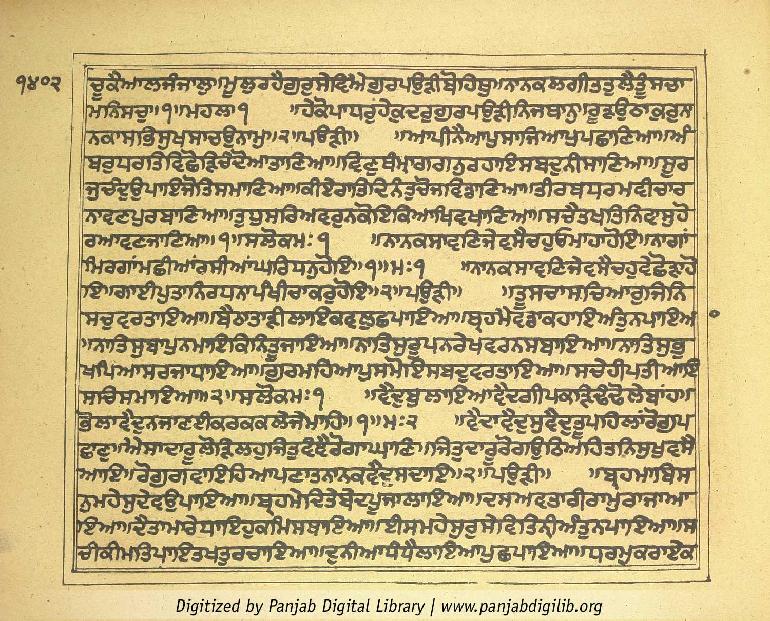 ੧੪੦੨
ਚੂਕੈਆਲਜੰਜਾਲਾ॥ਮੂਲੁਰਹੈਗੁਰੁਸੇਵਿਐਗੁਰਪਉੜੀਬੋਹਿਥੁ॥ਨਾਨਕਲਗੀਤਤੁਲੈਤੂੰਸਚਾ
ਮਨਿਸਚੁ॥੧॥ਮਹਲਾ੧ ॥ਹੇਕੋਪਾਧਰੁਹੇਕੁਦਰੁਗੁਰਪਉੜੀਨਿਜਥਾਨੁ॥ਰੂੜਉਠਾਕੁਰੁਨਾ
ਨਕਾਸਭਿਸੁਖਸਾਚਉਨਾਮੁ॥੨॥ਪਉੜੀ॥ ॥ਆਪੀਨੈਆਪੁਸਾਜਿਆਪੁਪਛਾਣਿਆ॥ਅੰ
ਬਰੁਧਰਤਿਵਿਛੋੜਿਚੰਦੋਆਤਾਣਿਆ॥ਵਿਣੁਥੰਮਾਗਗਨੁਰਹਾਇਸਬਦੁਨੀਸਾਣਿਆ॥ਸੂਰ
ਜੁਚੰਦੁਉਪਾਇਜੋਤਿਸਮਾਣਿਆ॥ਕੀਏਰਾਤਿਦਿਨੰਤੁਚੋਜਵਿਡਾਣਿਆ॥ਤੀਰਥਧਰਮਵੀਚਾਰ
ਨਾਵਣਪੁਰਬਾਣਿਆ॥ਤੁਧੁਸਰਿਅਵਰੁਨਕੋਇਕਿਆਖਿਵਖਾਣਿਆ॥ਸਚੈਤਖਤਿਨਿਵਾਸੁਹੋ
ਰਆਵਣਜਾਣਿਆ॥੧॥ਸਲੋਕਮਃ੧ ॥ਨਾਨਕਸਾਵਣਿਜੇਵਸੈਚਹੁਓਮਾਹਾਹੋਇ॥ਨਾਗਾਂ
ਮਿਰਗਾਂਮਛੀਆਂਰਸੀਆਂਘਰਿਧਨੁਹੋਇ॥੧॥ਮਃ੧ ॥ਨਾਨਕਸਾਵਣਿਜੇਵਸੈਚਹੁਵੇਛੋੜਾਹੋ
ਇ॥ਗਾਈਪੁਤਾਨਿਰਧਨਾਪੰਥੀਚਾਕਰੁਹੋਇ॥੨॥ਪਉੜੀ॥ ॥ਤੂਸਚਾਸਚਿਆਰੁਜਿਨਿ
ਸਚੁਵਰਤਾਇਆ॥ਬੈਠਾਤਾੜੀਲਾਇਕਵਲੁਛਪਾਇਆ॥ਬ੍ਰਹਮੈਵਡਾਕਹਾਇਅੰਤੁਨਪਾਇਆ
॥ਨਾਤਿਸੁਬਾਪੁਨਮਾਇਕਿਨਿਤੂਜਾਇਆ॥ਨਾਤਿਸੁਰੂਪੁਨਰੇਖਵਰਨਸਬਾਇਆ॥ਨਾਤਿਸੁਭੁ
ਖਪਿਆਸਰਜਾਧਾਇਆ॥ਗੁਰਮਹਿਆਪੁਸਮੋਇਸਬਦੁਵਰਤਾਇਆ॥ਸਚੇਹੀਪਤੀਆਇ
ਸਚਿਸਮਾਇਆ॥੨॥ਸਲੋਕਮਃ੧ ॥ਵੈਦੁਬੁਲਾਇਆਵੈਦਗੀਪਕੜਿਢੰਢੋਲੇਬਾਂਹ॥
ਭੋਲਾਵੈਦੁਨਜਾਣਈਕਰਕਕਲੇਜੇਮਾਹਿ॥੧॥ਮਃ੨ ॥ਵੈਦਾਵੈਦੁਸੁਵੈਦੁਤੂਪਹਿਲਾਂਰੋਗੁਪ
ਛਾਣੁ॥ਐਸਾਦਾਰੂਲੋੜਿਲਹੁਜਿਤੁਵੰਞੈਰੋਗਾਘਾਣਿ॥ਜਿਤੁਦਾਰੂਰੋਗਉਠਿਅਹਿਤਨਿਸੁਖੁਵਸੈ
ਆਇ॥ਰੋਗੁਗਵਾਇਹਿਆਪਣਾਤਨਾਨਕਵੈਦੁਸਦਾਇ॥੨॥ਪਉੜੀ॥ ॥ਬ੍ਰਹਮਾਬਿਸ
ਨੁਮਹੇਸੁਦੇਵਉਪਾਇਆ॥ਬ੍ਰਹਮੇਦਿਤੇਬੇਦਪੂਜਾਲਾਇਆ॥ਦਸਅਵਤਾਰੀਰਾਮੁਰਾਜਾਆ
ਇਆ॥ਦੈਤਾਮਾਰੇਧਾਇਹੁਕਮਿਸਬਾਇਆ॥ਈਸਮਹੇਸੁਰੁਸੇਵਤਿਨੀਅੰਤੁਨਪਾਇਆ॥ਸ
ਚੀਕੀਮਤਿਪਾਇਤਖਤੁਰਚਾਇਆ॥ਦੁਨੀਆਧੰਧੈਲਾਇਆਪੁਛਪਾਇਆ॥ਧਰਮੁਕਰਾਏਕ
Digitized by Panjab Digital Library | www.panjabdigilib.org